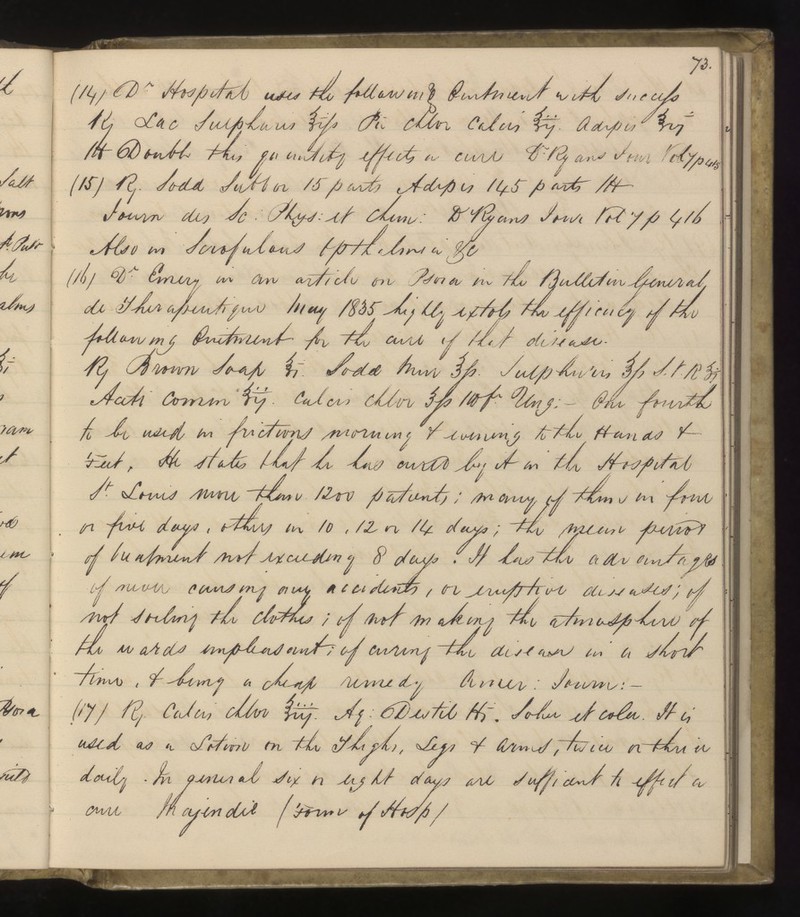 73.
(14) Dr Hospital uses the following Ointment with success
℞ Lac Sulphuris ℥ijss Pu Chlor Calcis ℥ij. Adipis ℥vj
M Double this quantity effects a cure Dr Ryans Jour Vol 7 p 415
(15) ℞. Sodd Subbor 15 parts Adipis 145 parts M
Journ des Sc: Phys: et Chem: Dr Ryans Jour Vol 7 p 416
Also in Scrofulous Opthalmia &c
(16) Dr Emery in an article on Psora in the Bulletin General
de Therapeutique May 1835 highly extols the efficacy of the
following Ointment for the cure of that disease.
℞ Brown Soap ℥i. Sodæ Mur ℥ss. Sulphuris ℥ss S.V.R ℥j
Aceti Commun ℥ij. Calcis Chlor ℥ss Mft Ung:- One fourth
to be used in frictions morning & evening to the Hands &
Feet. He states that he has cured by it in the Hospital
St Louis more than 1200 patients; many of them in four
or five days, others in 10, 12 or 14 days; the mean period
of treatment not exceeding 8 days. It has the advantages
of never causing any accidents, or eruptive diseases; of
not soiling the clothes; of not making the atmosphere of
the wards unpleasant; of curing the disease in a short
time, & being a cheap remedy Amer: Journ:-
(17) ℞ Calcis Chlor ℥iij. Aq: Destil ℔j. Solve et cola. It is
used as a Lotion on the Thighs, Legs & Arms, twice or thrice
daily. In general six or eight days are sufficient to effect a
cure Majendie (Form of Hosp)